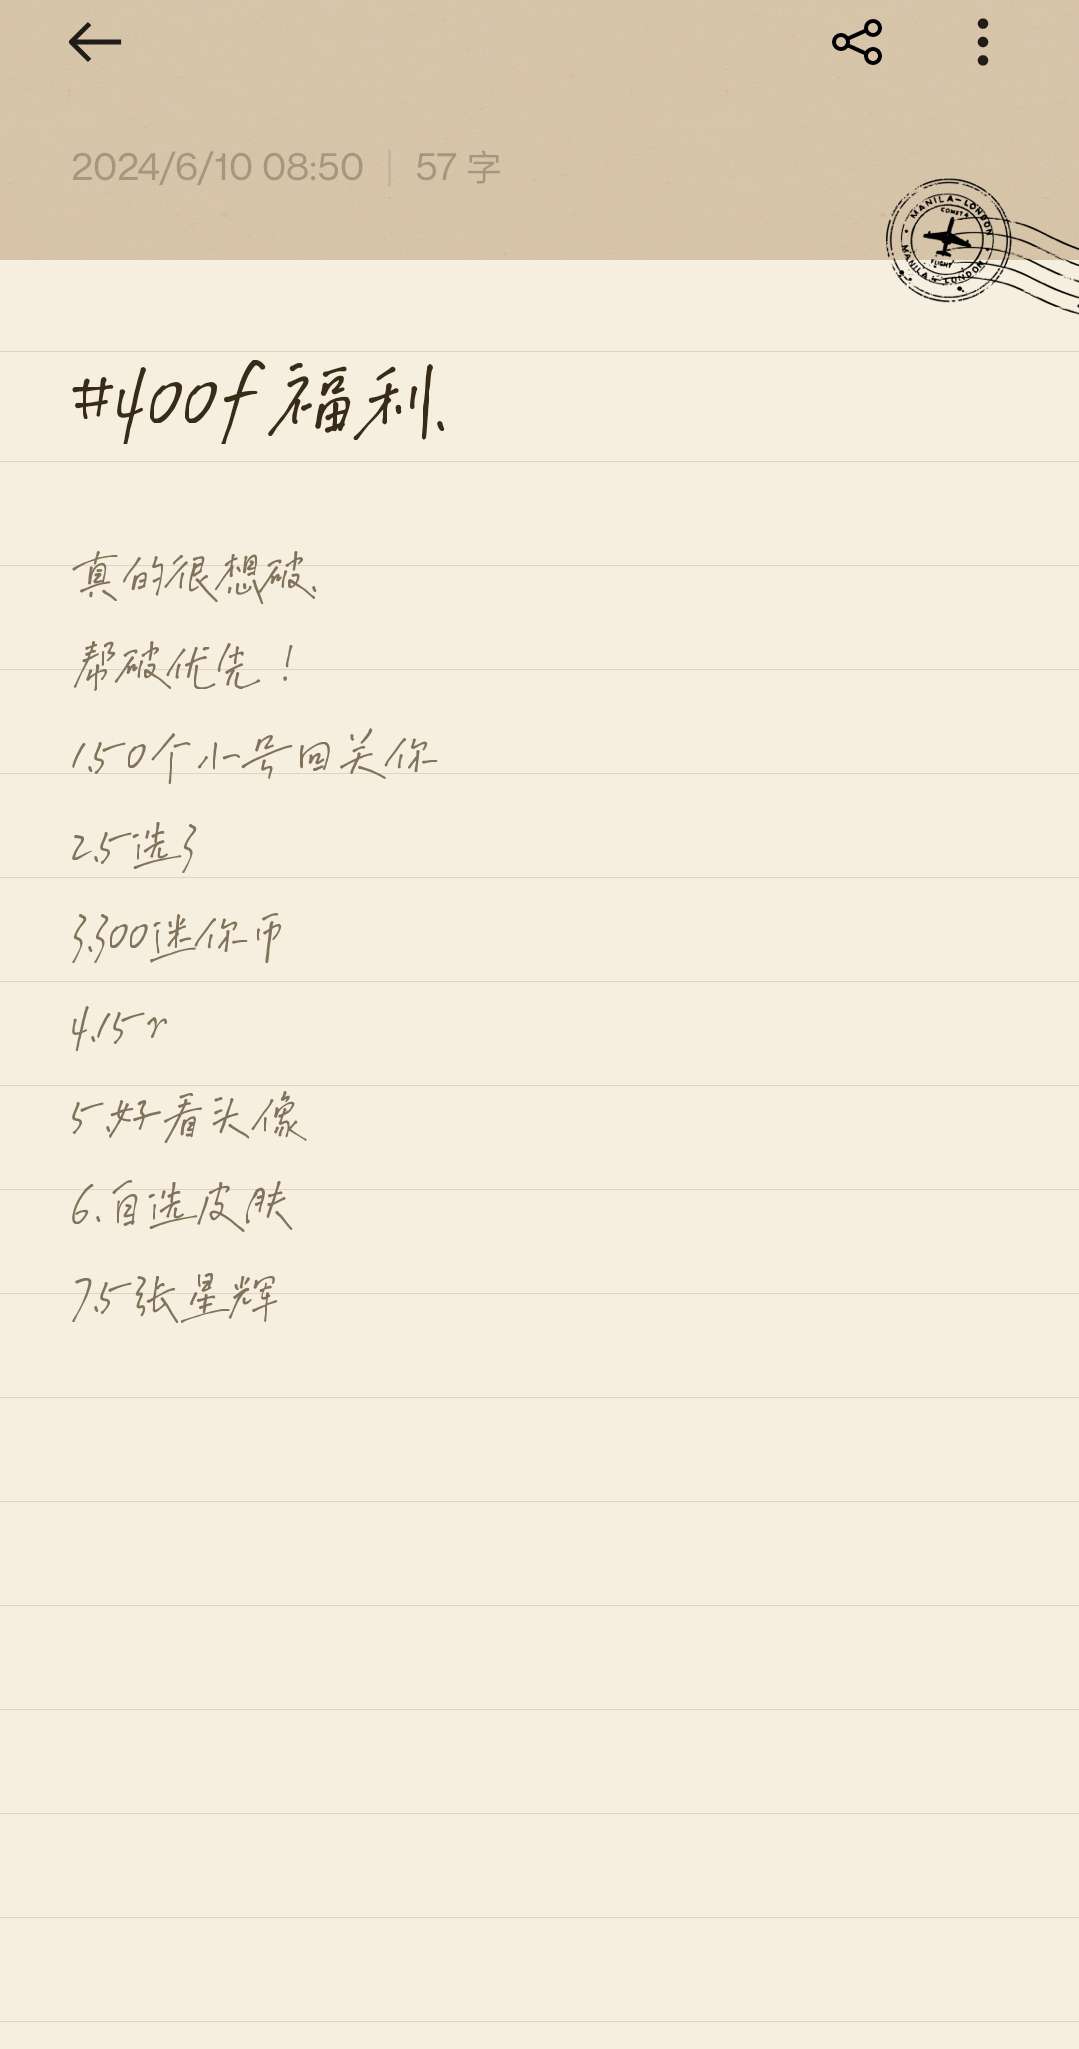 2024/6/10 08:50 | 57 字
MANILA-LONDON
COMET 4
FLIGHT
MANILA & LONDON
#400f福利、
真的很想破、
帮破优先！
1.50个小号回关你
2.5选3
3.300迷你币
4.15r
5.好看头像
6.自选皮肤
7.5张星辉